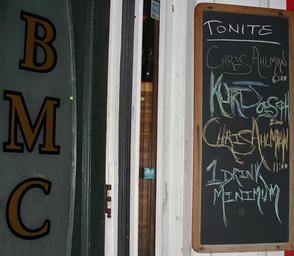 B
M
C
TONITE
CHRIS AHLMAN
6:00
KURT JOSEPH
8:00
CHRIS AHLMAN
11:00
1 DRINK
MINIMUM